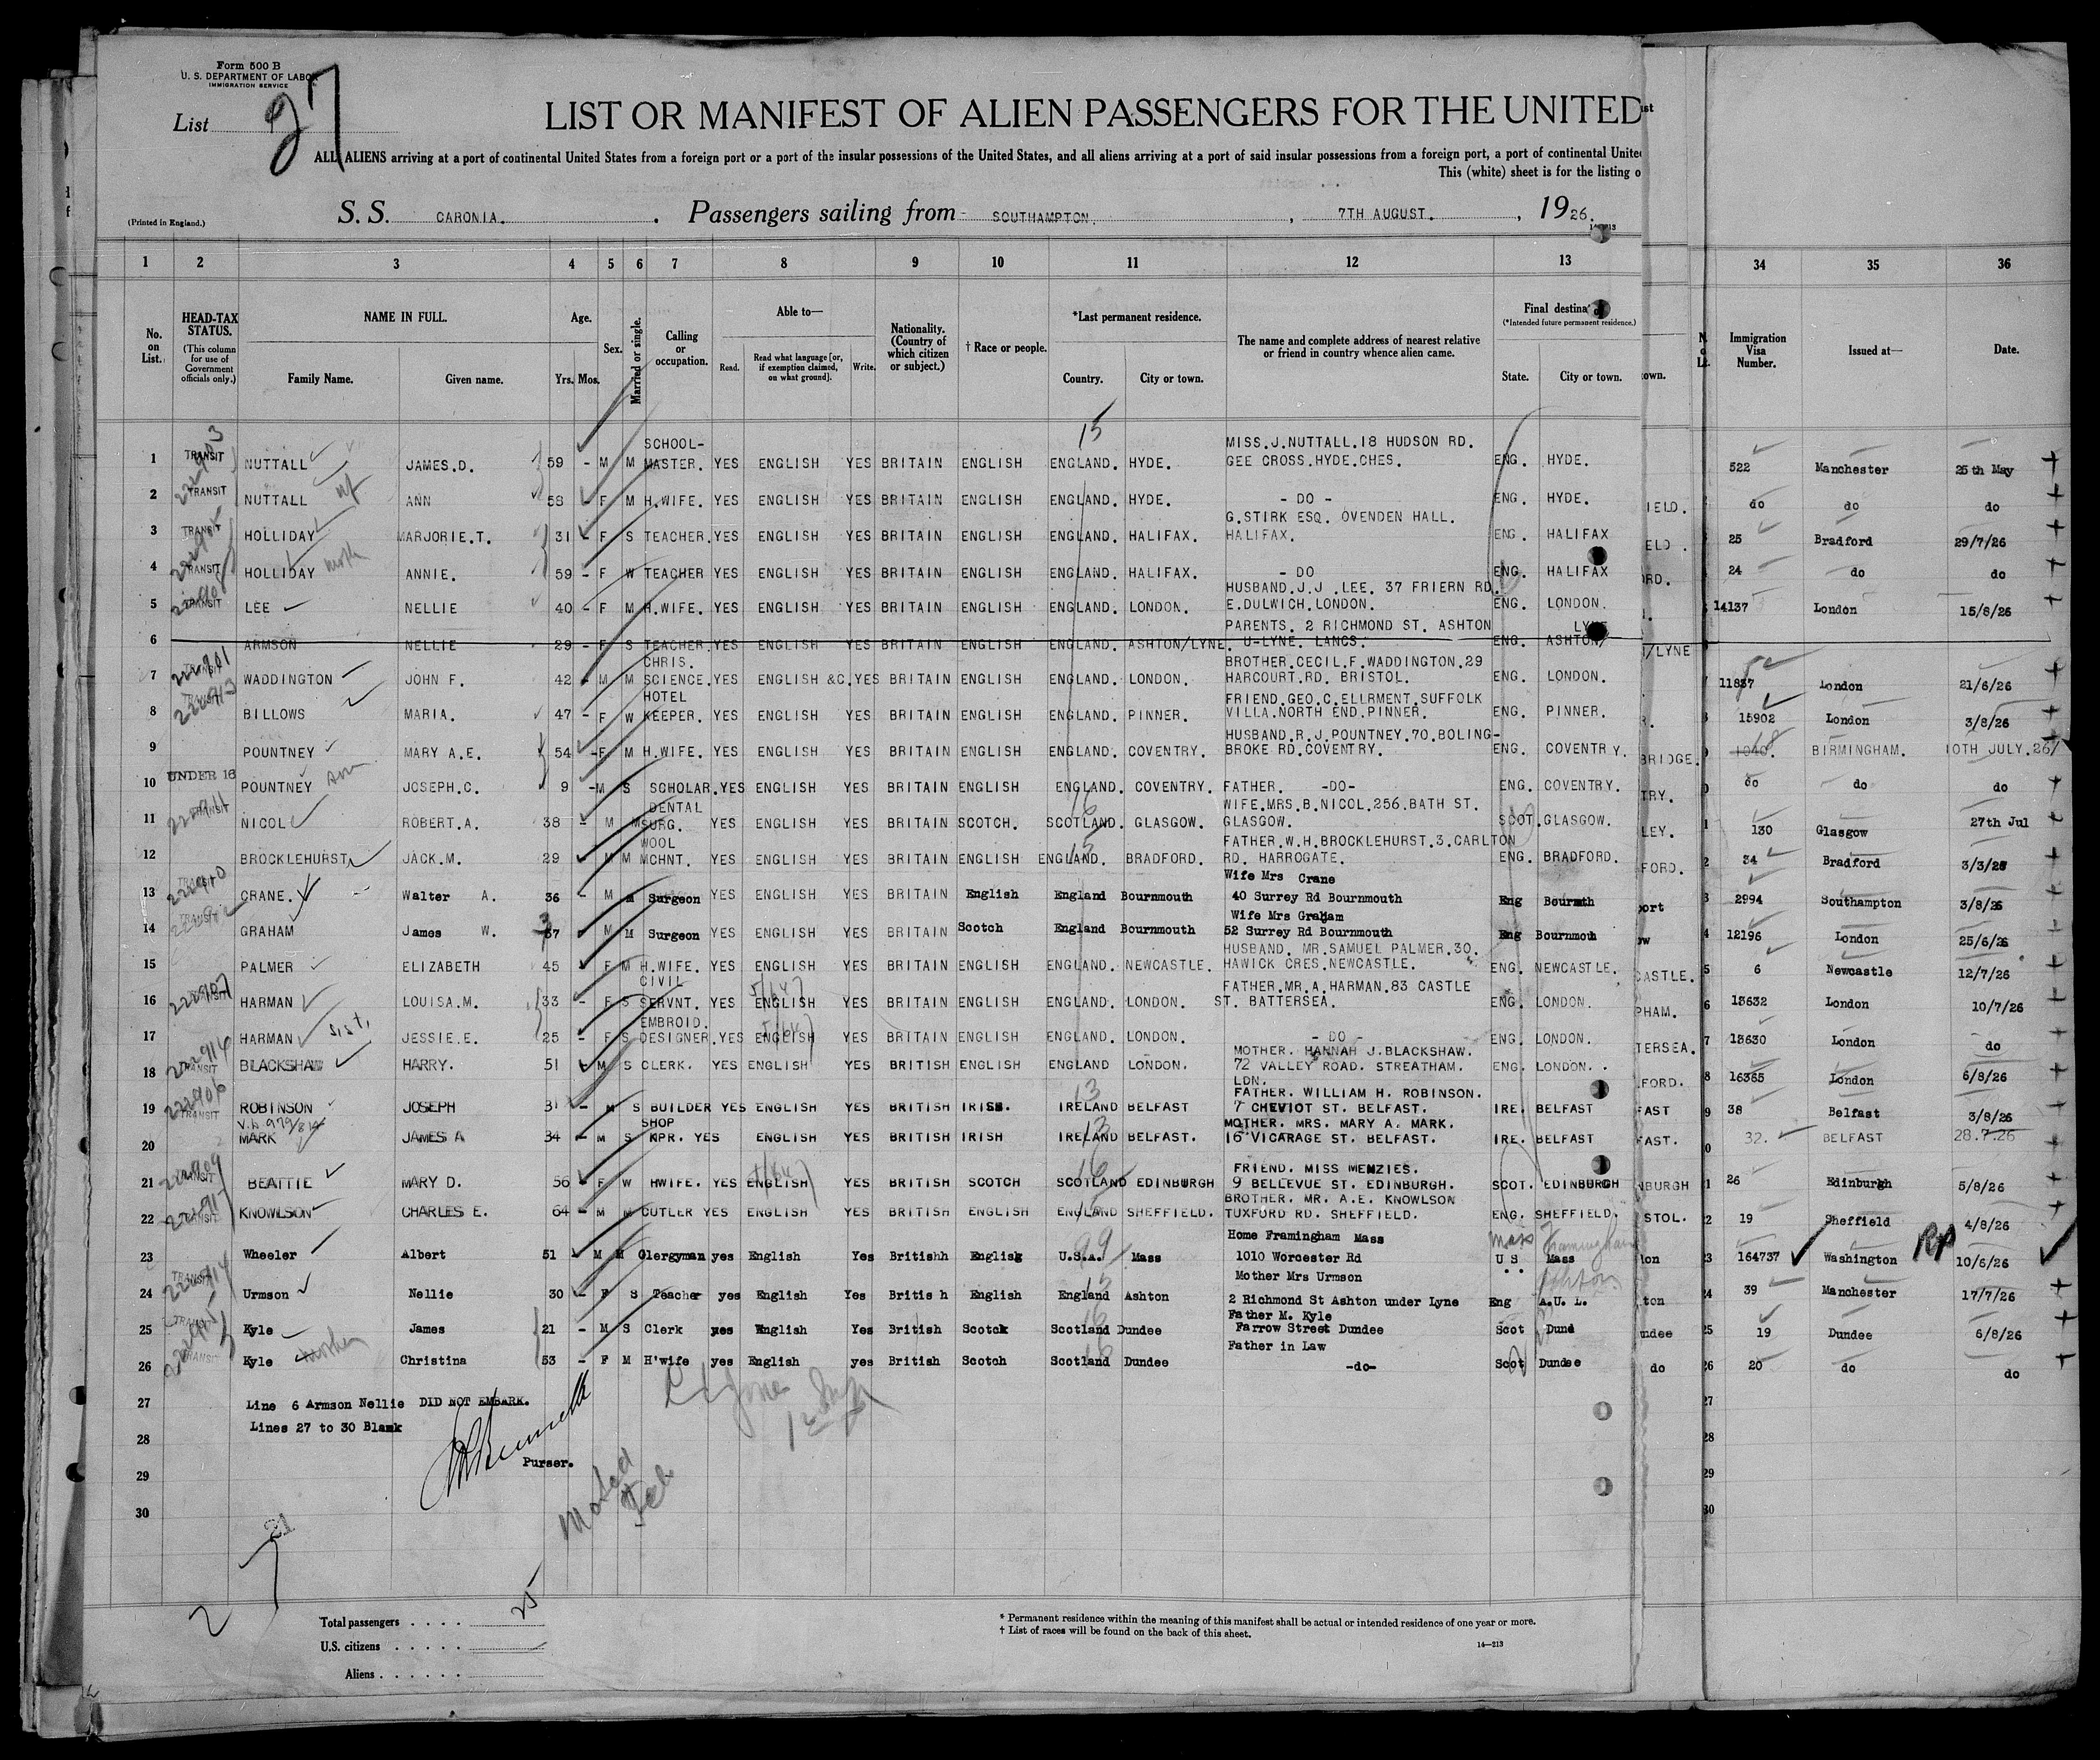 Form 500 B
U. S. DEPARTMENT OF LABOR
IMMIGRATION SERVICE
List 27
LIST OR MANIFEST OF ALIEN PASSENGERS FOR THE UNITED
ALL ALIENS arriving at a port of continental United States from a foreign port or a port of the insular possessions of the United States, and all aliens arriving at a port of said insular possessions from a foreign port, a port of continental Unite
This (white) sheet is for the listing o
(Printed in England.)
S. S. CARONIA. , Passengers sailing from SOUTHAMPTON. , 7TH AUGUST. , 1926.
1 2 3 4 5 6 7 8 9 10 11 12 13 34 35 36
No. on List.
HEAD-TAX STATUS.
(This column for use of Government officials only.)
NAME IN FULL.
Family Name. Given name.
Age.
Yrs. Mos.
Sex.
Married or single.
Calling or occupation.
Able to—
Read. Read what language [or, if exemption claimed, on what ground]. Write.
Nationality. (Country of which citizen or subject.)
† Race or people.
*Last permanent residence.
Country. City or town.
The name and complete address of nearest relative or friend in country whence alien came.
Final destina
(*Intended future permanent residence.)
State. City or town.
Immigration Visa Number.
Issued at—
Date.
15
1 TRANSIT NUTTALL JAMES.D. 59 - M M SCHOOL-MASTER. YES ENGLISH YES BRITAIN ENGLISH ENGLAND. HYDE. MISS.J.NUTTALL.18 HUDSON RD. GEE CROSS.HYDE.CHES. ENG. HYDE. 522 Manchester 25th May
2 TRANSIT NUTTALL ANN 58 - F M H.WIFE. YES ENGLISH YES BRITAIN ENGLISH ENGLAND. HYDE. - DO - ENG. HYDE. do do do
3 TRANSIT HOLLIDAY MARJORIE.T. 31 - F S TEACHER. YES ENGLISH YES BRITAIN ENGLISH ENGLAND. HALIFAX. G.STIRK ESQ. OVENDEN HALL. HALIFAX. ENG. HALIFAX 25 Bradford 29/7/26
4 TRANSIT HOLLIDAY moth ANNIE. 59 - F W TEACHER YES ENGLISH YES BRITAIN ENGLISH ENGLAND. HALIFAX. - DO ENG. HALIFAX 24 do do
5 TRANSIT LEE NELLIE 40 - F M H.WIFE. YES ENGLISH YES BRITAIN ENGLISH ENGLAND. LONDON. HUSBAND.J.J .LEE. 37 FRIERN RD. E.DULWICH.LONDON. ENG. LONDON. 14137 London 15/6/26
6 ARMSON NELLIE 29 - F S TEACHER. YES ENGLISH YES BRITAIN ENGLISH ENGLAND. ASHTON/LYNE. PARENTS. 2 RICHMOND ST. ASHTON U-LYNE. LANCS. ENG. ASHTON/ LYNE
7 222901 WADDINGTON JOHN F. 42 M M CHRIS. SCIENCE. YES ENGLISH &C. YES BRITAIN ENGLISH ENGLAND. LONDON. BROTHER.CECIL.F.WADDINGTON.29 HARCOURT.RD. BRISTOL. ENG. LONDON. 11837 London 21/6/26
8 BILLOWS MARIA. 47 - F W HOTEL KEEPER. YES ENGLISH YES BRITAIN ENGLISH ENGLAND. PINNER. FRIEND.GEO.C.ELLRMENT.SUFFOLK VILLA.NORTH END.PINNER. ENG. PINNER. 15902 London 3/8/26
9 POUNTNEY MARY A.E. 54 - F M H.WIFE. YES ENGLISH YES BRITAIN ENGLISH ENGLAND. COVENTRY. HUSBAND.R.J.POUNTNEY.70.BOLING-BROKE RD.COVENTRY. ENG. COVENTRY. BIRMINGHAM. 10TH JULY.26
10 UNDER 16 POUNTNEY son JOSEPH.C. 9 - M S SCHOLAR. YES ENGLISH YES BRITAIN ENGLISH ENGLAND. COVENTRY. FATHER. -DO- ENG. COVENTRY. do do do
16
11 NICOL ROBERT.A. 38 - M M DENTAL SURG. YES ENGLISH YES BRITAIN SCOTCH. SCOTLAND. GLASGOW. WIFE.MRS.B.NICOL.256.BATH ST. GLASGOW. SCOT. GLASGOW. 130 Glasgow 27th Jul
15
12 BROCKLEHURST JACK.M. 29 M M WOOL MCHNT. YES ENGLISH YES BRITAIN ENGLISH ENGLAND. BRADFORD. FATHER.W.H.BROCKLEHURST.3.CARLTON RD. HARROGATE. ENG. BRADFORD. 34 Bradford
13 222910 CRANE. Walter A. 36 - M M Surgeon YES ENGLISH YES BRITAIN English England Bournmouth Wife Mrs Crane 40 Surrey Rd Bournmouth Eng 2994 Southampton 3/8/26
14 TRANSIT GRAHAM James W. 37 M M Surgeon YES ENGLISH YES BRITAIN Scotch England Bournmouth Wife Mrs Graham 52 Surrey Rd Bournmouth Eng Bournmouh 12196 London 25/6/26
15 PALMER ELIZABETH 45 F M H.WIFE. YES ENGLISH YES BRITAIN ENGLISH ENGLAND. NEWCASTLE. HUSBAND. MR.SAMUEL PALMER.30. HAWICK CRES.NEWCASTLE. ENG. NEWCASTLE. 6 Newcastle 12/7/26
16 222907 HARMAN LOUISA.M. 33 - F S CIVIL SERVNT. YES ENGLISH YES BRITAIN ENGLISH ENGLAND. LONDON. FATHER.MR.A.HARMAN.83 CASTLE ST. BATTERSEA. ENG. LONDON. 13632 London 10/7/26
17 HARMAN sist. JESSIE.E. 25 - F S EMBROID. DESIGNER. YES ENGLISH YES BRITAIN ENGLISH ENGLAND. LONDON. - DO - ENG. LONDON. 13630 London do
18 TRANSIT BLACKSHAW HARRY. 51 M S CLERK. YES ENGLISH YES BRITISH ENGLISH ENGLAND LONDON. MOTHER. HANNAH J.BLACKSHAW. 72 VALLEY ROAD. STREATHAM. LDN. ENG. LONDON. 16365 London 6/8/26
13
19 222906 TRANSIT ROBINSON JOSEPH 31 - M S BUILDER YES ENGLISH YES BRITISH IRISH. IRELAND BELFAST FATHER. WILLIAM H. ROBINSON. 7 CHEVIOT ST. BELFAST. IRE. BELFAST 38 Belfast 3/8/26
20 MARK JAMES A 34 - M S SHOP KPR. YES ENGLISH YES BRITISH IRISH IRELAND BELFAST. MOTHER. MRS. MARY A. MARK. 16 VICARAGE ST. BELFAST. IRE. BELFAST 32. BELFAST 28.7.26
21 222909 TRANSIT BEATTIE MARY D. 56 F W HWIFE. YES ENGLISH YES BRITISH SCOTCH SCOTLAND EDINBURGH FRIEND. MISS MENZIES. 9 BELLEVUE ST. EDINBURGH. SCOT. EDINBURGH 26 Edinburgh 5/8/26
22 TRANSIT KNOWLSON CHARLES E. 64 - M M CUTLER YES ENGLISH YES BRITISH ENGLISH ENGLAND SHEFFIELD. BROTHER. MR. A.E. KNOWLSON TUXFORD RD. SHEFFIELD. ENG. SHEFFIELD. 19 Sheffield 4/8/26
23 Wheeler Albert 51 M M Clergyman yes English Yes Britishh English U.S.A. 99 Mass Home Framingham Mass 1010 Worcester Rd Mass Framingham U S Mass 164737 Washington 10/6/26
24 TRANSIT Urmson Nellie 30 - F S Teacher yes English Yes Britis h English England Ashton Mother Mrs Urmson 2 Richmond St Ashton under Lyne Eng A.U. L. Ashton 39 Manchester 17/7/26
25 TRANSIT Kyle James 21 - M S Clerk yes English Yes British Scotch Scotland Dundee Father M. Kyle Farrow Street Dundee Scot Dund 19 Dundee 6/8/26
26 TRANSIT Kyle mother Christina 53 - F M H'wife yes English yes British Scotch Scotland Dundee Father in Law -do- Scot Dundee 20 do do
27 Line 6 Armson Nellie DID NOT EMBARK.
Lines 27 to 30 Blank
28
Purser.
29
30
21
Total passengers . . . . 25
U.S. citizens . . . . .
Aliens . . . . . .
* Permanent residence within the meaning of this manifest shall be actual or intended residence of one year or more.
† List of races will be found on the back of this sheet.
14—213